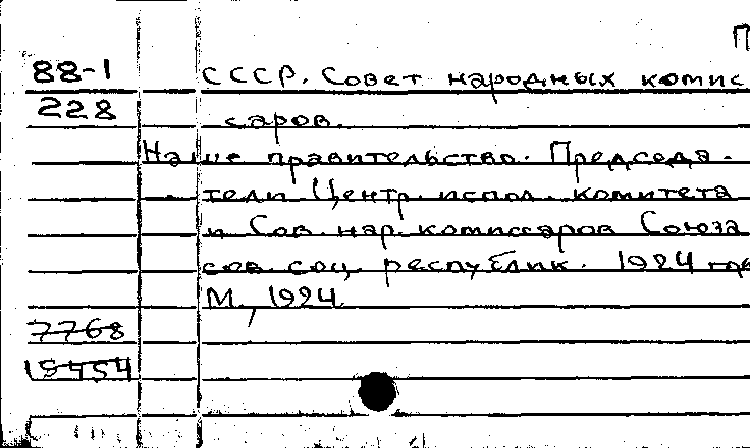 П
88-1 СССР. Совет народных комис
228 саров.
Наше правительство. Председа-
тели Центр. испол. комитета
и Сов. нар. комиссаров Союза
сов. соц. республик. 1924 год
М., 1924
7768
19454